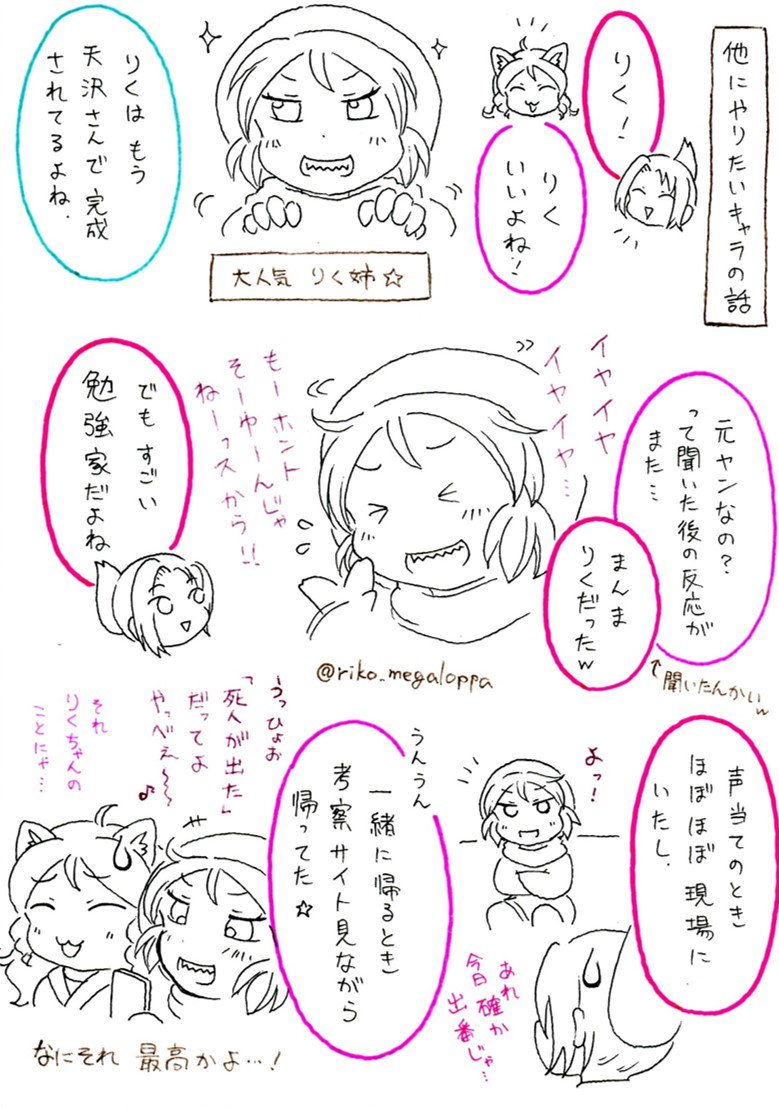 他にやりたいキャラの話
りく!
りく
いいよね!
大人気 りく姉☆
りくは もう
天沢さんで 完成
されてるよね.
元ヤンなの?
って聞いた後の反応が
また…
↑聞いたんかいw
まんま
りくだったw
イヤイヤ
イヤイヤ…
もーホント
そーゆーんじゃ
ねーっスから!!
でも すごい
勉強家だよね
@riko_megaloppa
声当てのとき
ほぼほぼ 現場に
いたし.
よっ!
あれ
今日 確か
出番じゃ…
うんうん
一緒に帰るとき
考察サイト見ながら
帰ってた☆
うっひょお
「死人が出た」
だってよ
やっべぇ〜〜♪
それ
りくちゃんの
ことにゃ…
なにそれ 最高かよ…!